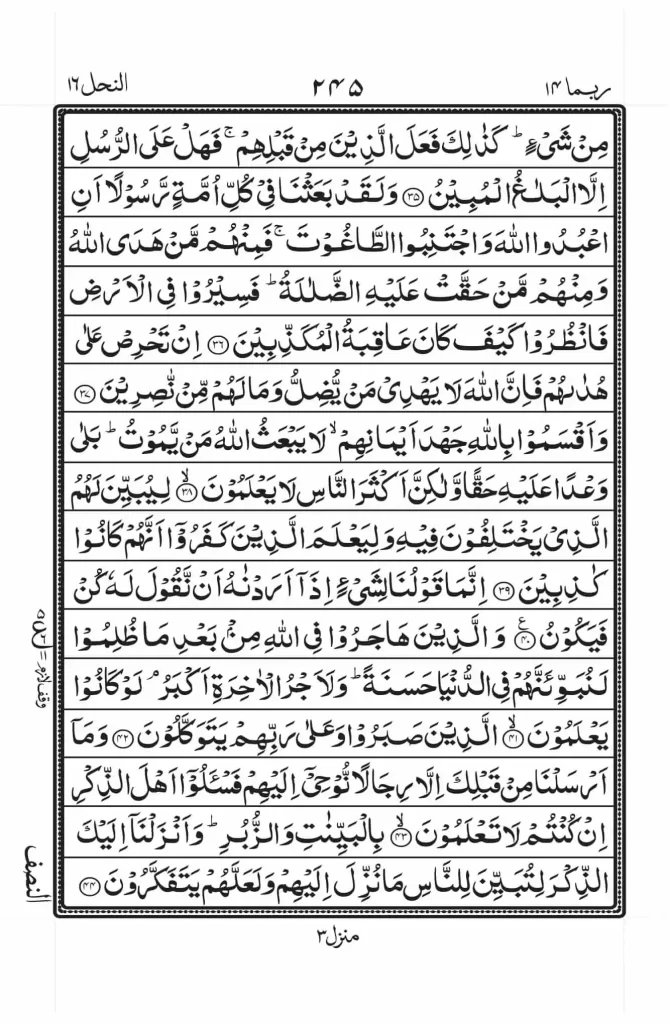 ربما ۱۴
۲۴۵
النحل ۱۶
مِنۡ شَیۡءٍ ؕ کَذٰلِکَ فَعَلَ الَّذِیۡنَ مِنۡ قَبۡلِهِمۡ ۚ فَهَلۡ عَلَی الرُّسُلِ
اِلَّا الۡبَلٰغُ الۡمُبِیۡنُ ﴿۳۵﴾ وَلَقَدۡ بَعَثۡنَا فِیۡ کُلِّ اُمَّةٍ رَّسُوۡلًا اَنِ
اعۡبُدُوا اللّٰهَ وَاجۡتَنِبُوا الطَّاغُوۡتَ ۚ فَمِنۡهُمۡ مَّنۡ هَدَی اللّٰهُ
وَمِنۡهُمۡ مَّنۡ حَقَّتۡ عَلَیۡهِ الضَّلٰلَةُ ؕ فَسِیۡرُوۡا فِی الۡاَرۡضِ
فَانۡظُرُوۡا کَیۡفَ کَانَ عَاقِبَةُ الۡمُکَذِّبِیۡنَ ﴿۳۶﴾ اِنۡ تَحۡرِصۡ عَلٰی
هُدٰىهُمۡ فَاِنَّ اللّٰهَ لَا یَهۡدِیۡ مَنۡ یُّضِلُّ وَمَا لَهُمۡ مِّنۡ نّٰصِرِیۡنَ ﴿۳۷﴾
وَاَقۡسَمُوۡا بِاللّٰهِ جَهۡدَ اَیۡمَانِهِمۡ ۙ لَا یَبۡعَثُ اللّٰهُ مَنۡ یَّمُوۡتُ ؕ بَلٰی
وَعۡدًا عَلَیۡهِ حَقًّا وَّلٰکِنَّ اَکۡثَرَ النَّاسِ لَا یَعۡلَمُوۡنَ ﴿ۙ۳۸﴾ لِیُبَیِّنَ لَهُمُ
الَّذِیۡ یَخۡتَلِفُوۡنَ فِیۡهِ وَلِیَعۡلَمَ الَّذِیۡنَ کَفَرُوۡۤا اَنَّهُمۡ کَانُوۡا
کٰذِبِیۡنَ ﴿۳۹﴾ اِنَّمَا قَوۡلُنَا لِشَیۡءٍ اِذَاۤ اَرَدۡنٰهُ اَنۡ نَّقُوۡلَ لَهٗ کُنۡ
فَیَکُوۡنُ ﴿۴۰﴾ ع وَالَّذِیۡنَ هَاجَرُوۡا فِی اللّٰهِ مِنۡۢ بَعۡدِ مَا ظُلِمُوۡا
لَنُبَوِّئَنَّهُمۡ فِی الدُّنۡیَا حَسَنَةً ؕ وَلَاَجۡرُ الۡاٰخِرَةِ اَکۡبَرُ ۘ لَوۡ کَانُوۡا
یَعۡلَمُوۡنَ ﴿ۙ۴۱﴾ الَّذِیۡنَ صَبَرُوۡا وَعَلٰی رَبِّهِمۡ یَتَوَکَّلُوۡنَ ﴿۴۲﴾ وَمَاۤ
اَرۡسَلۡنَا مِنۡ قَبۡلِکَ اِلَّا رِجَالًا نُّوۡحِیۡۤ اِلَیۡهِمۡ فَسۡـَٔلُوۡۤا اَهۡلَ الذِّکۡرِ
اِنۡ کُنۡتُمۡ لَا تَعۡلَمُوۡنَ ﴿ۙ۴۳﴾ بِالۡبَیِّنٰتِ وَالزُّبُرِ ؕ وَاَنۡزَلۡنَاۤ اِلَیۡکَ
الذِّکۡرَ لِتُبَیِّنَ لِلنَّاسِ مَا نُزِّلَ اِلَیۡهِمۡ وَلَعَلَّهُمۡ یَتَفَکَّرُوۡنَ ﴿۴۴﴾
وقف لازم
النصف
منزل ۳